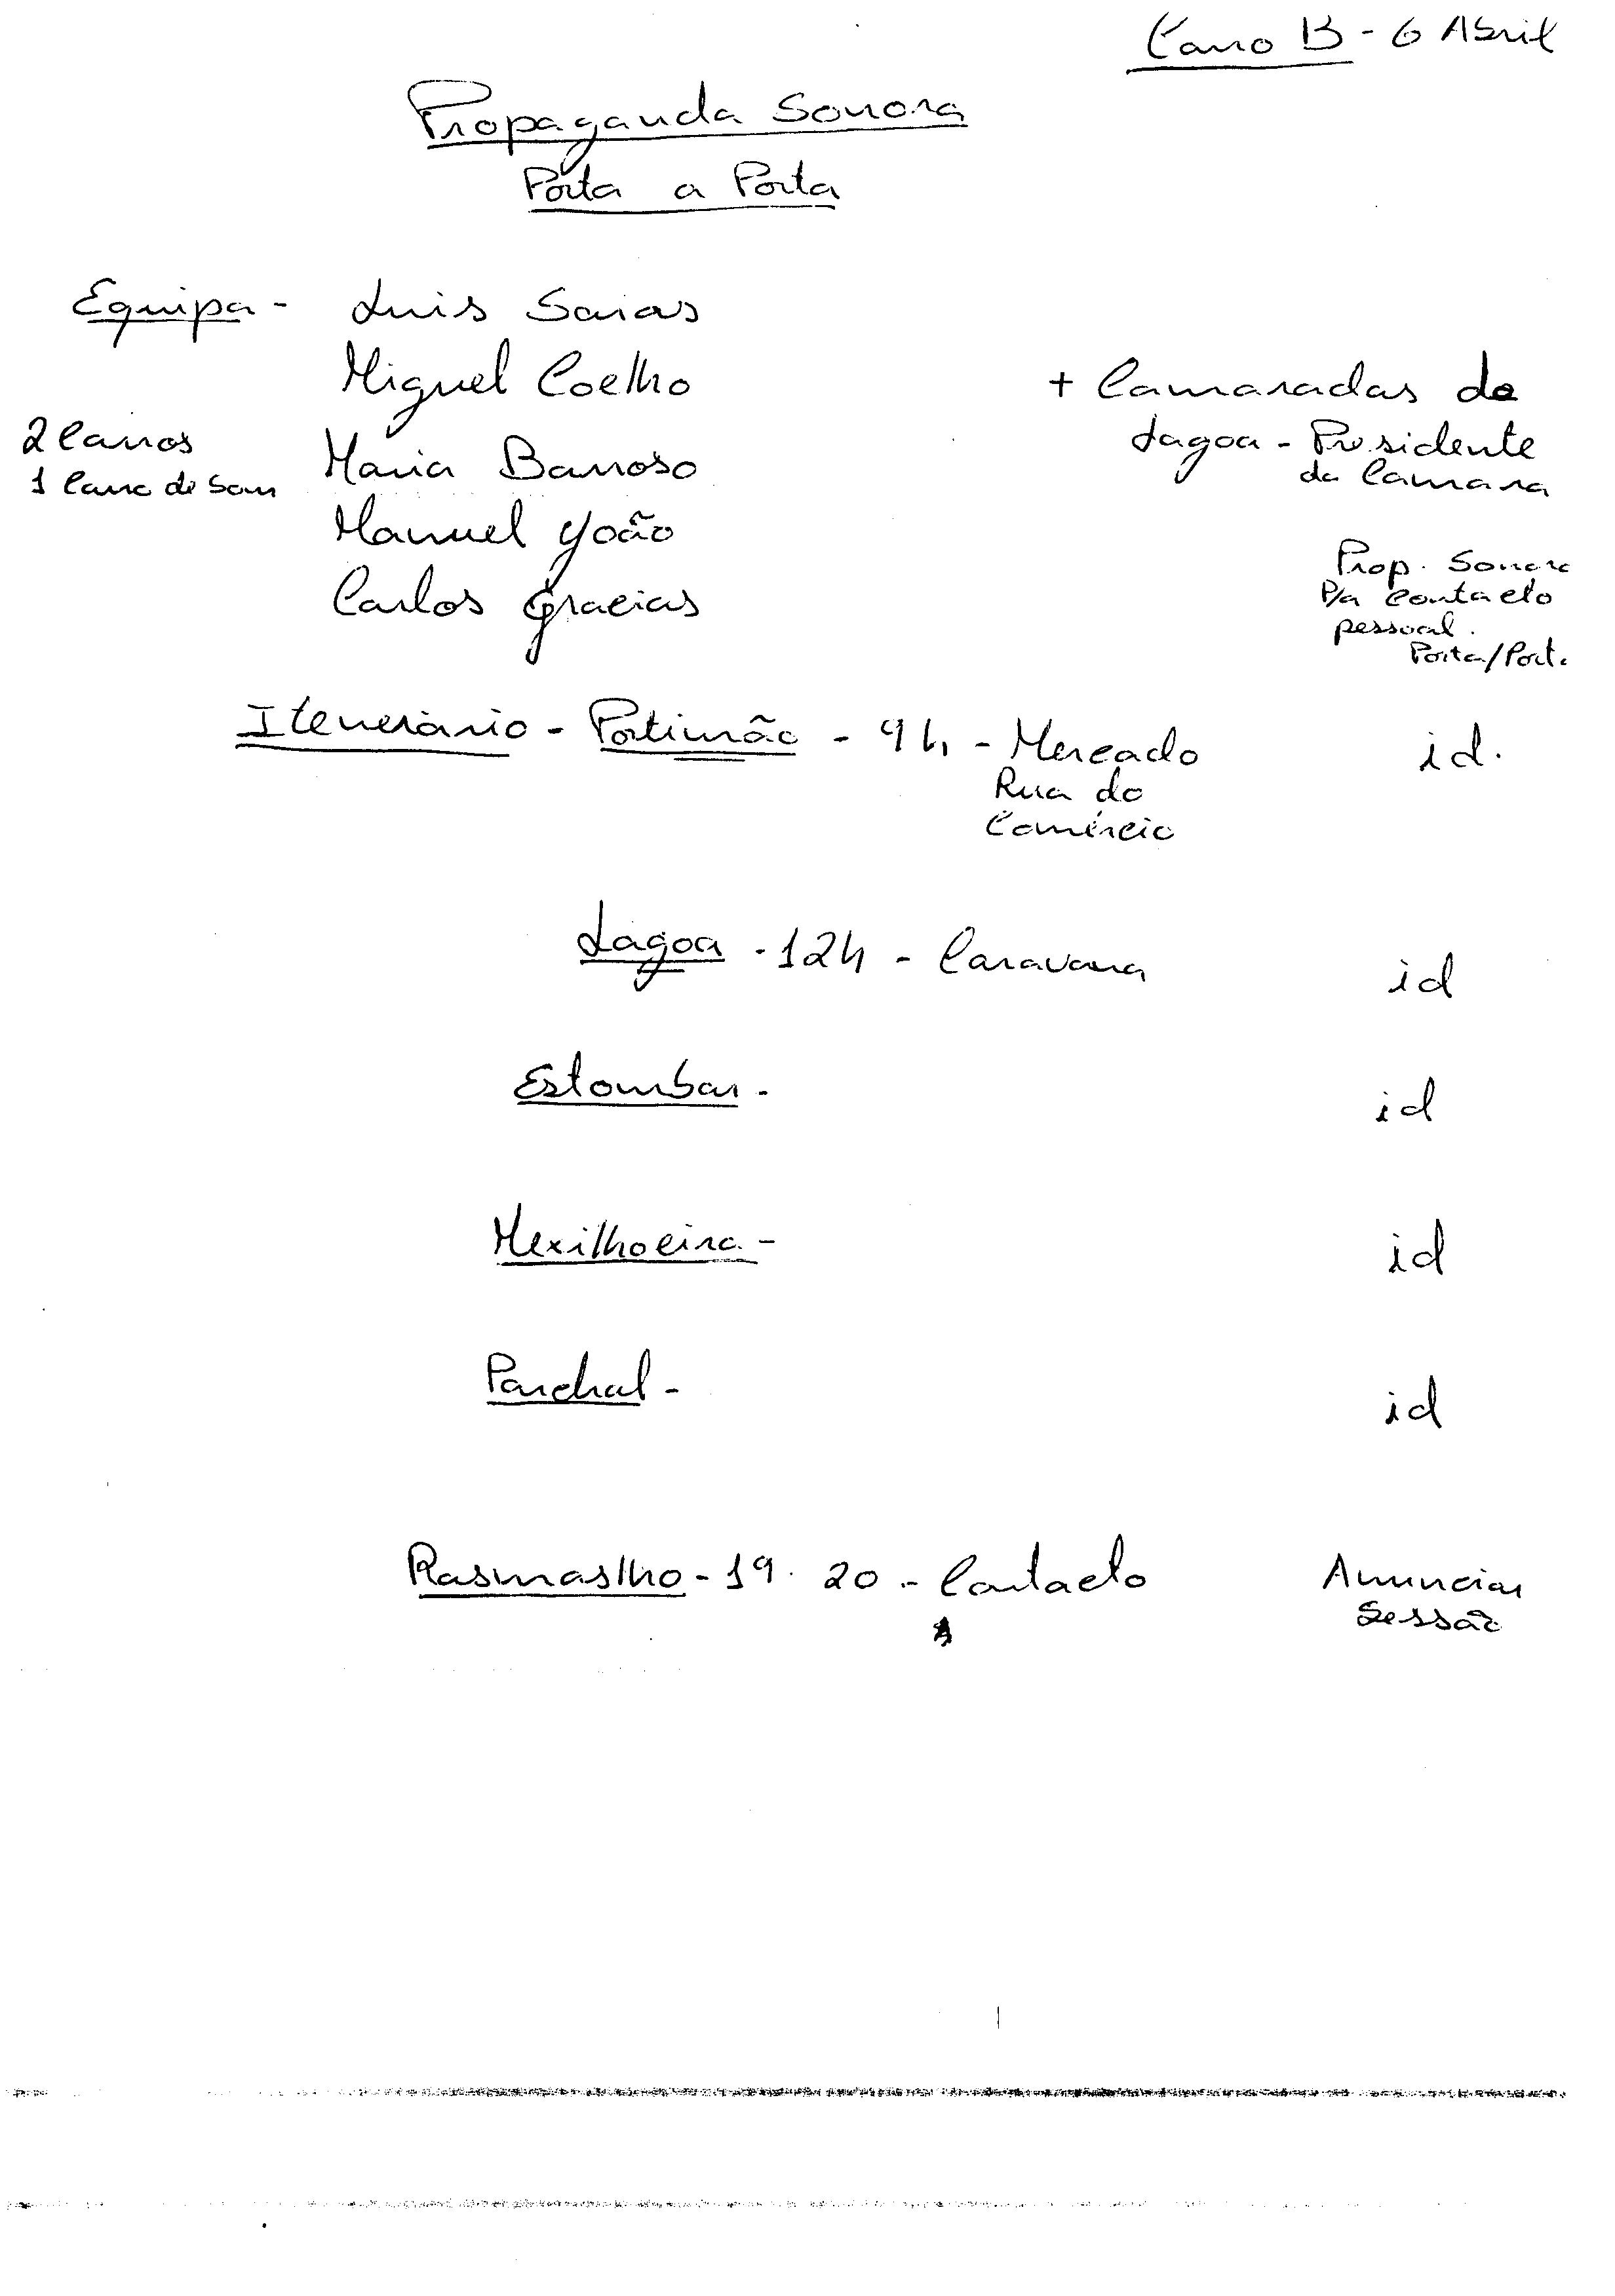 Carro B - 6 Abril
Propaganda Sonora
Porta a Porta
Equipa - Luis Saias
Miguel Coelho
+ Camaradas de
2 Carros
Lagoa - Presidente
Maria Barroso
da Camara
1 Carro de Som
Manuel João
Prop. Sonora
Carlos Gracias
P/a Contacto
pessoal.
Porta/Port.
Itenerário - Portimão - 9h - Mercado
id.
Rua do
Comércio
Lagoa - 12h - Caravana
id
Estombar -
id
Mexilhoeira -
id
Parchal -
id
- 19. 20 - Contacto
Anunciar
Sessão